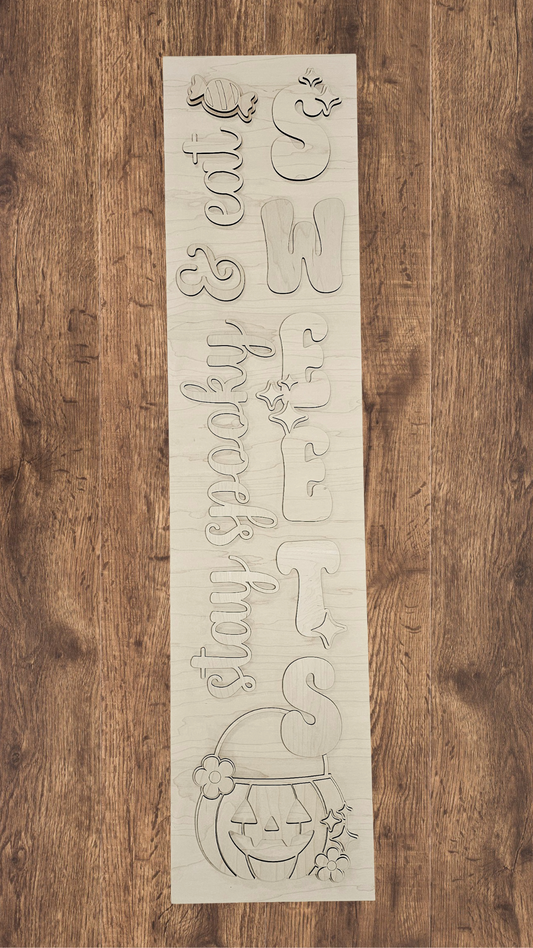 stay spooky & eat
SWEETS